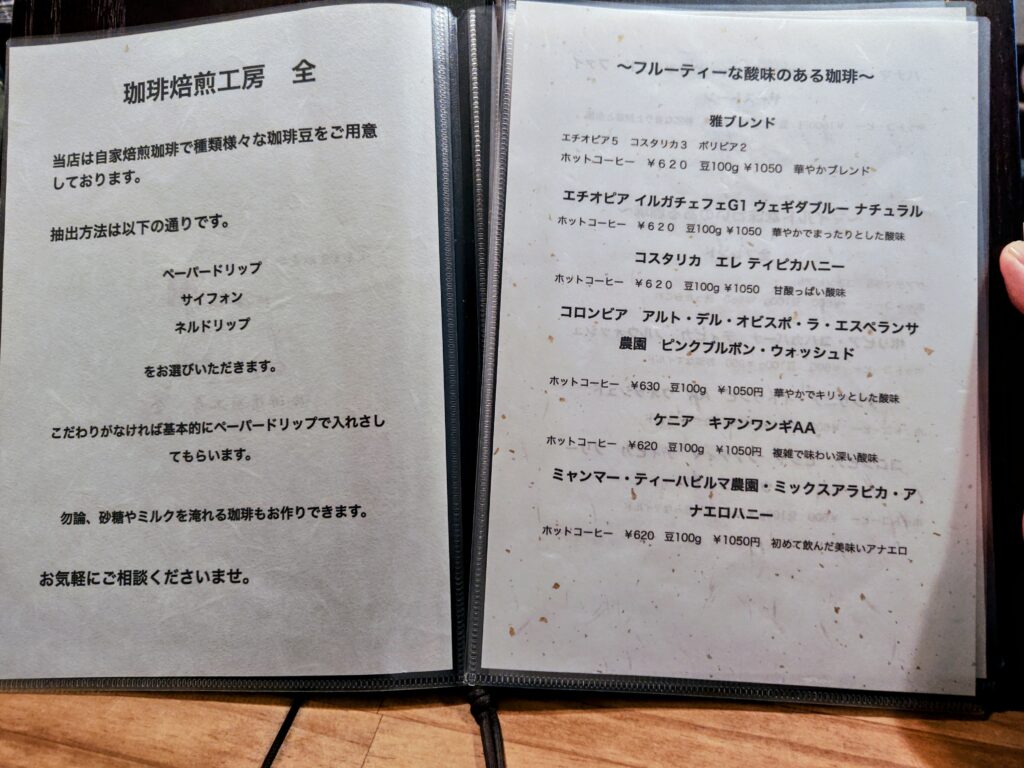 珈琲焙煎工房　全
当店は自家焙煎珈琲で種類様々な珈琲豆をご用意
しております。
抽出方法は以下の通りです。
ペーパードリップ
サイフォン
ネルドリップ
をお選びいただきます。
こだわりがなければ基本的にペーパードリップで入れさし
てもらいます。
勿論、砂糖やミルクを淹れる珈琲もお作りできます。
お気軽にご相談くださいませ。
〜フルーティーな酸味のある珈琲〜
雅ブレンド
エチオピア５　コスタリカ３　ボリビア２
ホットコーヒー　￥６２０　豆100g ￥1050　華やかブレンド
エチオピア イルガチェフェG1 ウェギダブルー ナチュラル
ホットコーヒー　￥６２０　豆100g ￥1050　華やかでまったりとした酸味
コスタリカ　エレ ティピカハニー
ホットコーヒー　￥６２０　豆100g ￥1050　甘酸っぱい酸味
コロンビア　アルト・デル・オビスポ・ラ・エスペランサ
農園　ピンクブルボン・ウォッシュド
ホットコーヒー　￥630　豆100g　￥1050円　華やかでキリッとした酸味
ケニア　キアンワンギAA
ホットコーヒー　￥620　豆100g　￥1050円　複雑で味わい深い酸味
ミャンマー・ティーハビルマ農園・ミックスアラビカ・ア
ナエロハニー
ホットコーヒー　￥620　豆100g　￥1050円　初めて飲んだ美味いアナエロ